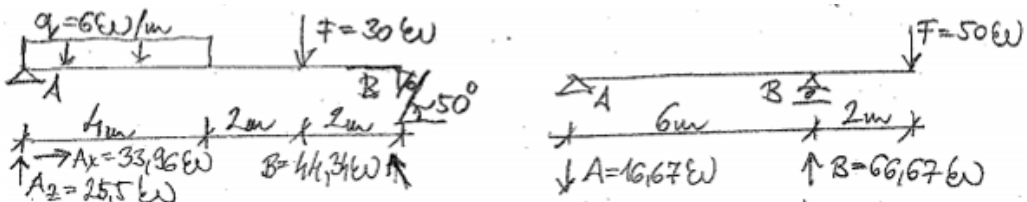 q=6kN/m
F=30kN
A
B
50°
4m 2m 2m
Ax=33,96kN
B=44,34kN
Az=25,5kN
F=50kN
A
B
6m 2m
A=16,67kN
B=66,67kN